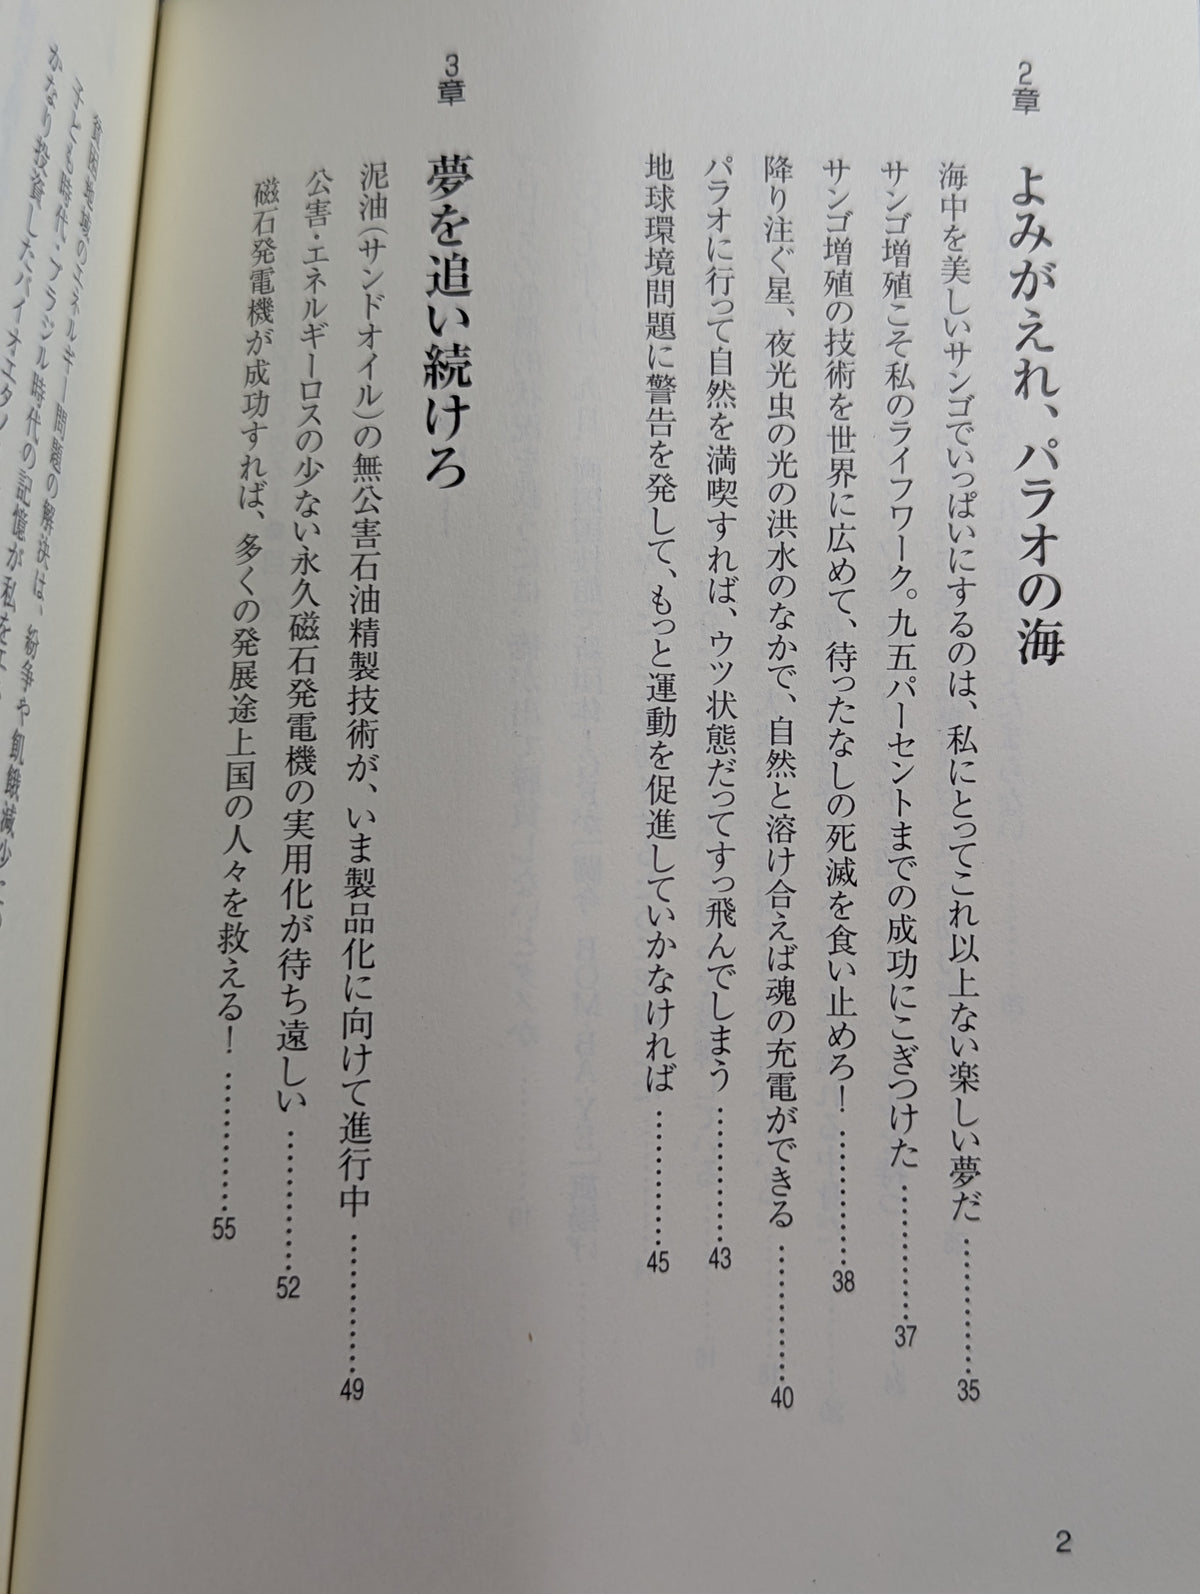 2章 よみがえれ、パラオの海
海中を美しいサンゴでいっぱいにするのは、私にとってこれ以上ない楽しい夢だ …………… 35
サンゴ増殖こそ私のライフワーク。九五パーセントまでの成功にこぎつけた …………… 37
サンゴ増殖の技術を世界に広めて、待ったなしの死滅を食い止めろ！ …………… 38
降り注ぐ星、夜光虫の光の洪水のなかで、自然と溶け合えば魂の充電ができる …………… 40
パラオに行って自然を満喫すれば、ウツ状態だってすっ飛んでしまう …………… 43
地球環境問題に警告を発して、もっと運動を促進していかなければ …………… 45
3章 夢を追い続けろ
泥油（サンドオイル）の無公害石油精製技術が、いま製品化に向けて進行中 …………… 49
公害・エネルギーロスの少ない永久磁石発電機の実用化が待ち遠しい …………… 52
磁石発電機が成功すれば、多くの発展途上国の人々を救える！ …………… 55
2
貧困地域のエネルギー問題の解決は、紛争や飢餓減少
子ども時代・ブラジル時代の記憶が私を
かなり投資したバイオエタノ